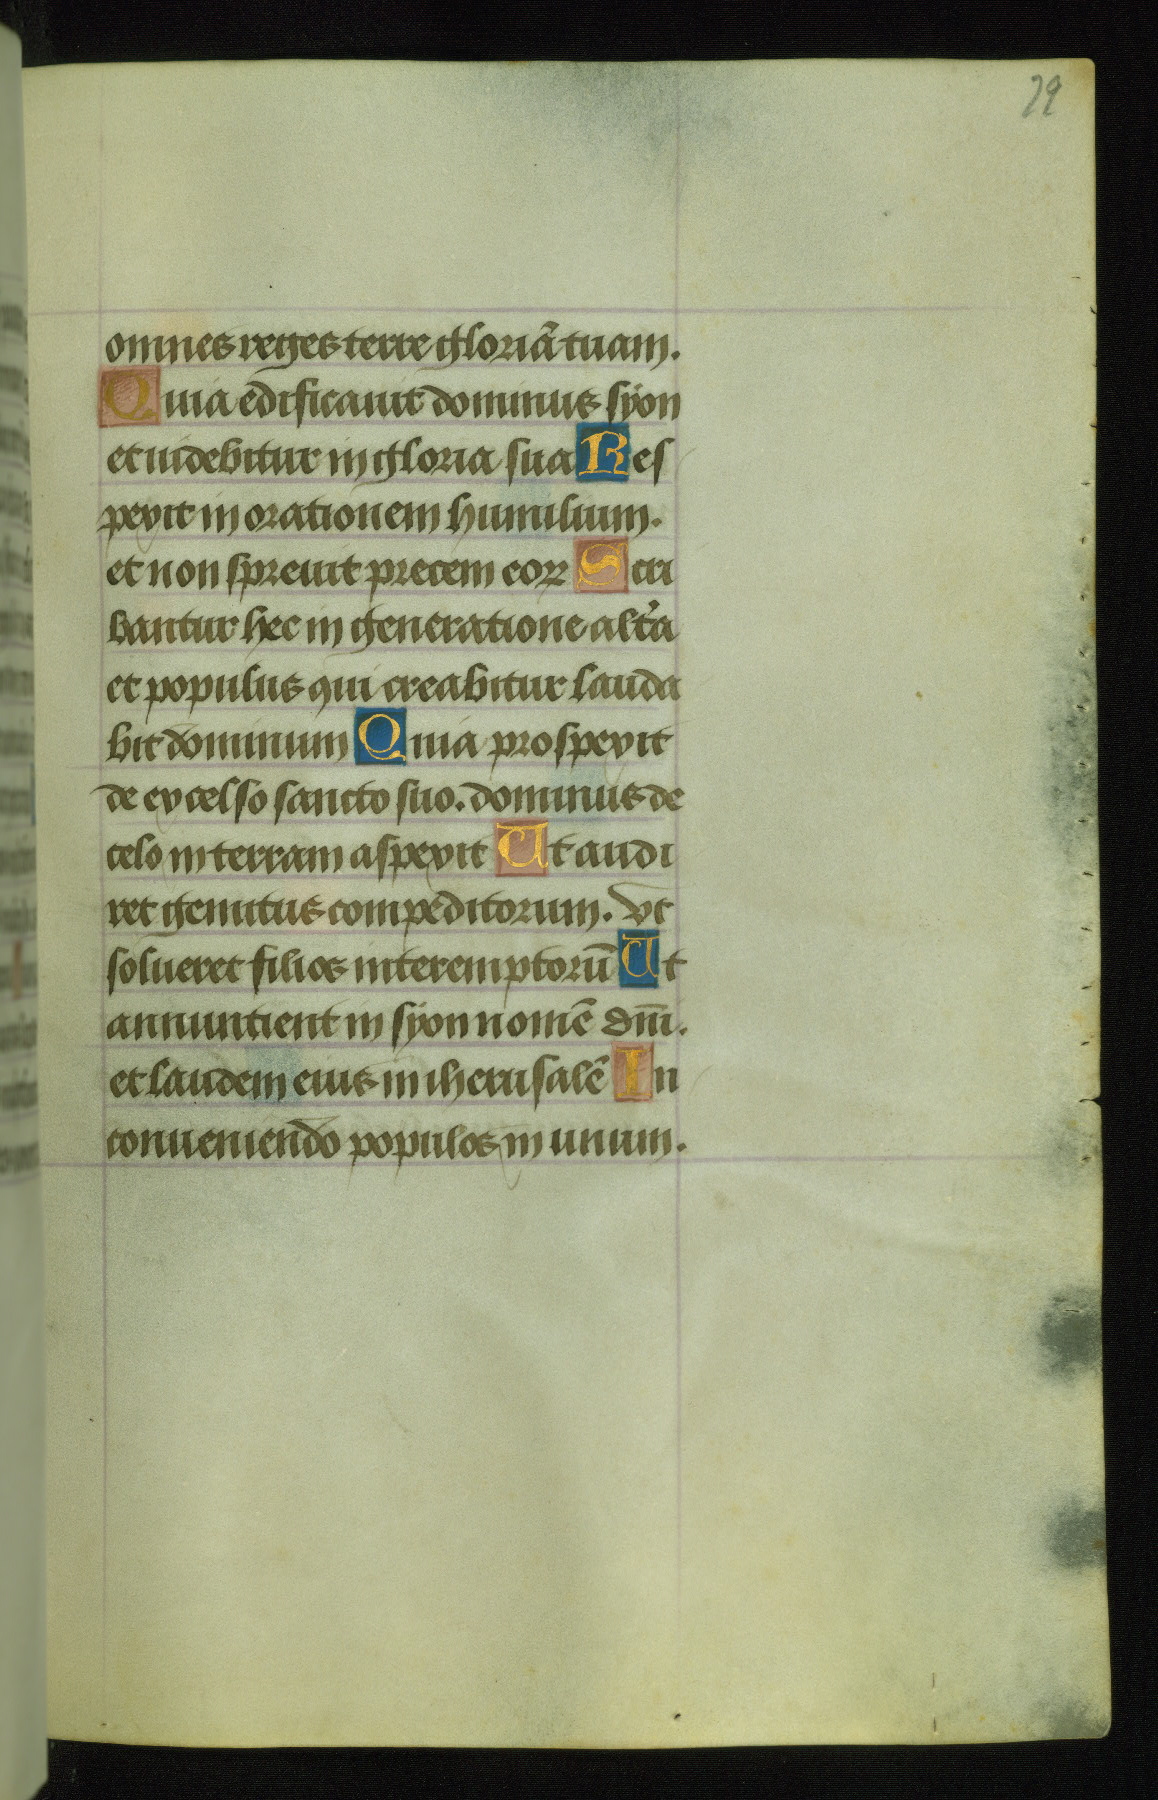 29
omnes reges terre gloriã tuam.
Quia edificauit dominus syon
et uidebitur in gloria sua Res
pexit in orationem humilium.
et non spreuit precem eoꝝ Scri
bantur hec in generatione alt̉a
et populus qui creabitur lauda
bit dominum Quia prospexit
de excelso sancto suo. dominus de
celo in terram aspexit Ut audi
ret gemitus compeditorum. vt
solueret filios interemptorũ Ut
annuntient in syon nomẽ dñi.
et laudem eius in iherusalẽ In
conueniendo populos in unum.